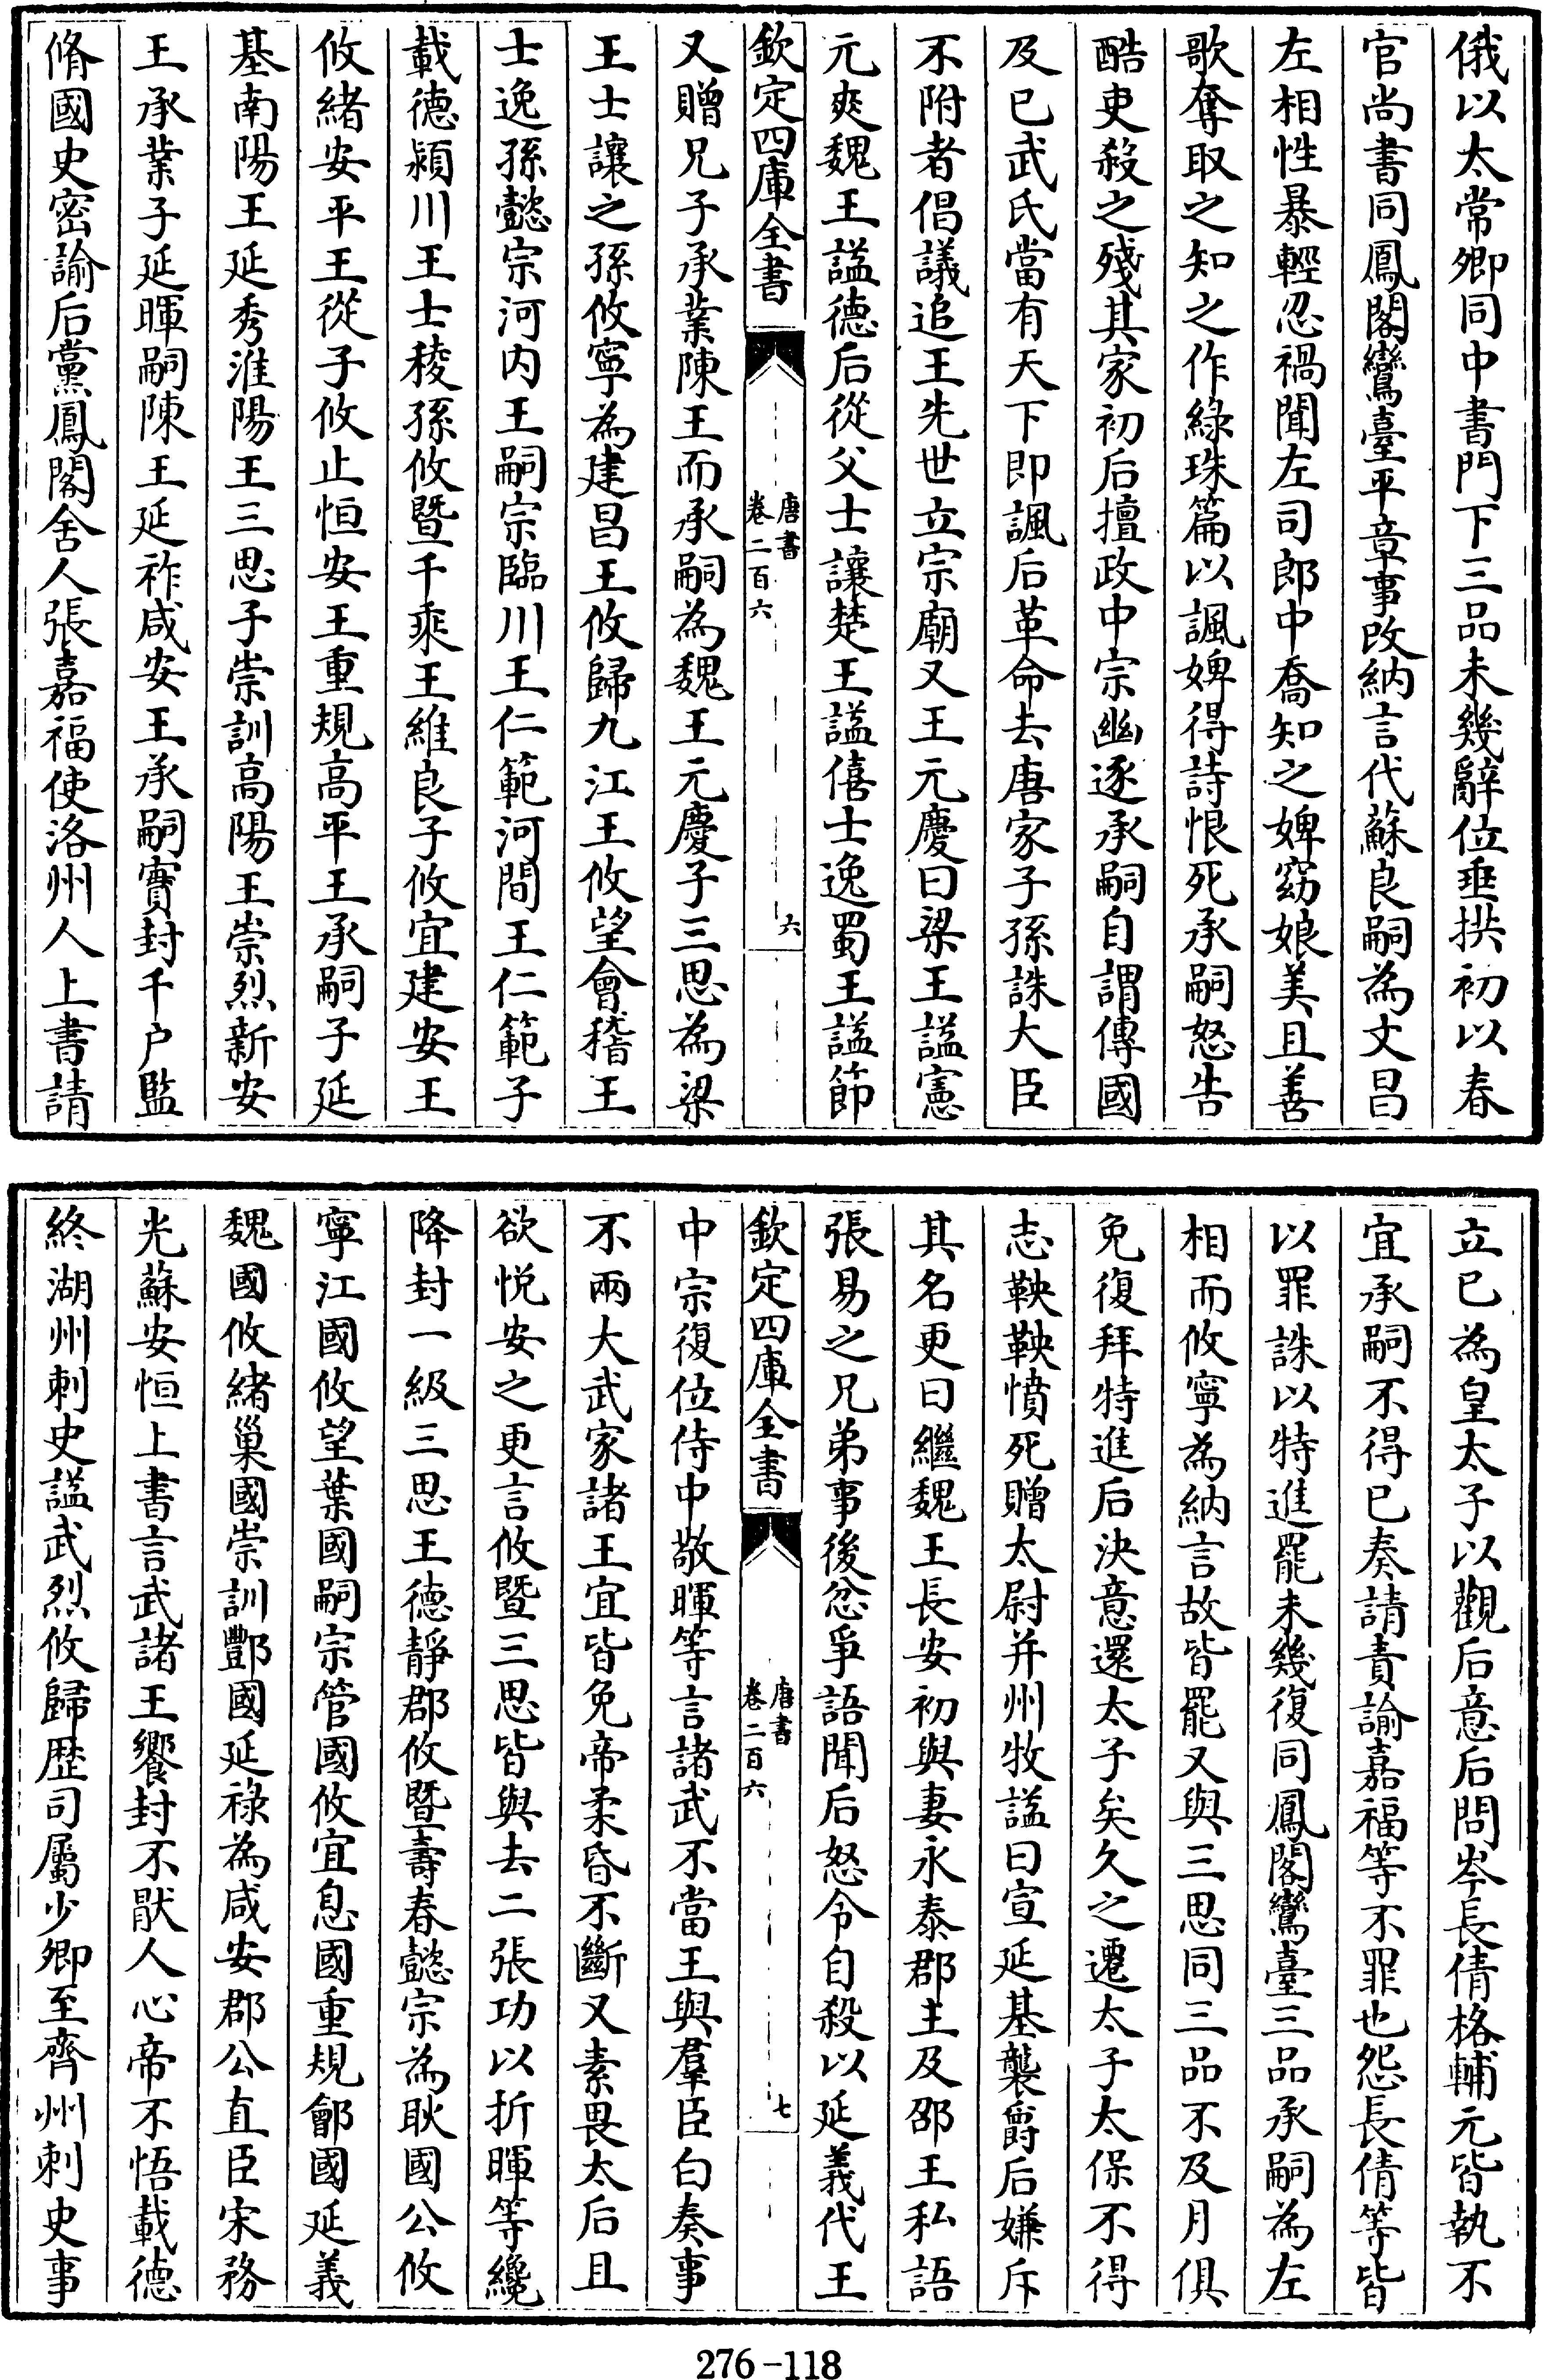 俄以太常卿同中書門下三品未幾辭位垂拱初以春
官尚書同鳳閣鸞臺平章事改納言代蘇良嗣為文昌
左相性暴輕忍禍聞左司郎中喬知之婢窈娘美且善
歌奪取之知之作綠珠篇以諷婢得詩恨死承嗣怒告
酷吏殺之殘其家初后擅政中宗幽逐承嗣自謂傳國
及已武氏當有天下即諷后革命去唐家子孫誅大臣
不附者倡議追王先世立宗廟又王元慶曰梁王謚憲
元爽魏王謚德后從父士讓楚王謚僖士逸蜀王謚節
欽定四庫全書
唐書
卷二百六
六
又贈兄子承業陳王而承嗣為魏王元慶子三思為梁
王士讓之孫攸寧為建昌王攸歸九江王攸望會稽王
士逸孫懿宗河内王嗣宗臨川王仁範河間王仁範子
載德潁川王士稜孫攸暨千乘王維良子攸宜建安王
攸緒安平王從子攸止恒安王重規高平王承嗣子延
基南陽王延秀淮陽王三思子崇訓高陽王崇烈新安
王承業子延暉嗣陳王延祚咸安王承嗣實封千户監
脩國史密諭后黨鳳閣舍人張嘉福使洛州人上書請
立已為皇太子以觀后意后問岑長倩格輔元皆執不
宜承嗣不得已奏請責諭嘉福等不罪也怨長倩等皆
以罪誅以特進罷未幾復同鳳閣鸞臺三品承嗣為左
相而攸寧為納言故皆罷又與三思同三品不及月俱
免復拜特進后決意還太子矣久之遷太子太保不得
志鞅鞅憤死贈太尉并州牧謚曰宣延基襲爵后嫌斥
其名更曰繼魏王長安初與妻永泰郡主及邵王私語
張易之兄弟事後忿爭語聞后怒令自殺以延義代王
欽定四庫全書
唐書
卷二百六
七
中宗復位侍中敬暉等言諸武不當王與羣臣白奏事
不兩大武家諸王宜皆免帝柔昏不斷又素畏太后且
欲悦安之更言攸暨三思皆與去二張功以折暉等纔
降封一級三思王德靜郡攸暨壽春懿宗為耿國公攸
寧江國攸望葉國嗣宗管國攸宜息國重規鄶國延義
魏國攸緒巢國崇訓酆國延祿為咸安郡公直臣宋務
光蘇安恒上書言武諸王饗封不厭人心帝不悟載德
終湖州刺史謚武烈攸歸歴司屬少卿至齊州刺史事
276-118